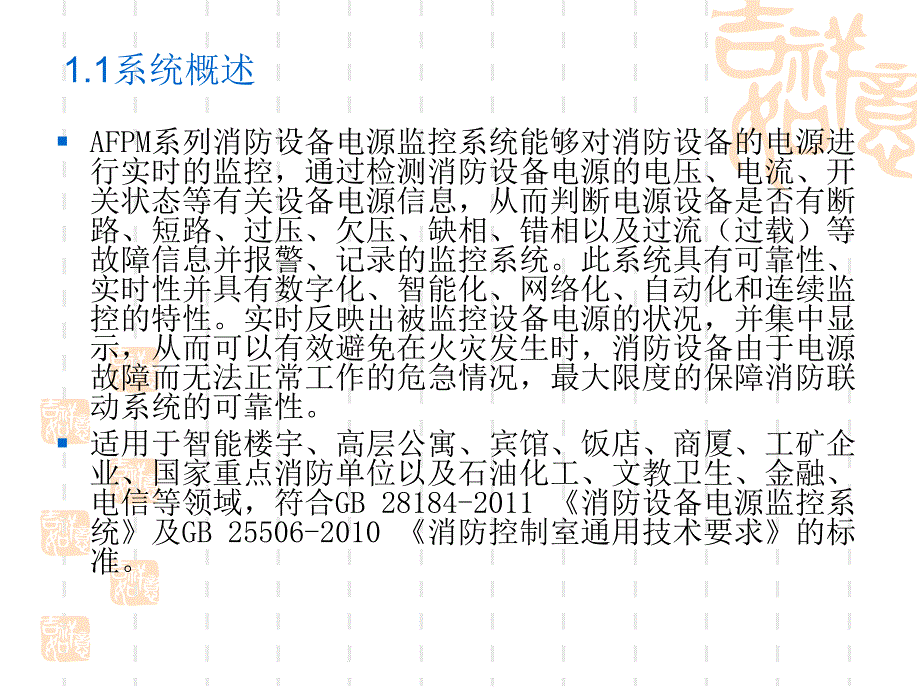 吉祥
如意
1.1系统概述
AFPM系列消防设备电源监控系统能够对消防设备的电源进
行实时的监控，通过检测消防设备电源的电压、电流、开
关状态等有关设备电源信息，从而判断电源设备是否有断
路、短路、过压、欠压、缺相、错相以及过流（过载）等
故障信息并报警、记录的监控系统。此系统具有可靠性、
实时性并具有数字化、智能化、网络化、自动化和连续监
控的特性。实时反映出被监控设备电源的状况，并集中显
示，从而可以有效避免在火灾发生时，消防设备由于电源
故障而无法正常工作的危急情况，最大限度的保障消防联
动系统的可靠性。
适用于智能楼宇、高层公寓、宾馆、饭店、商厦、工矿企
业、国家重点消防单位以及石油化工、文教卫生、金融、
电信等领域，符合GB 28184-2011 《消防设备电源监控系
统》及GB 25506-2010 《消防控制室通用技术要求》的标
准。
吉祥
如意
吉祥
如意
吉祥
如意
吉祥
如意
吉祥
如意
吉祥
如意